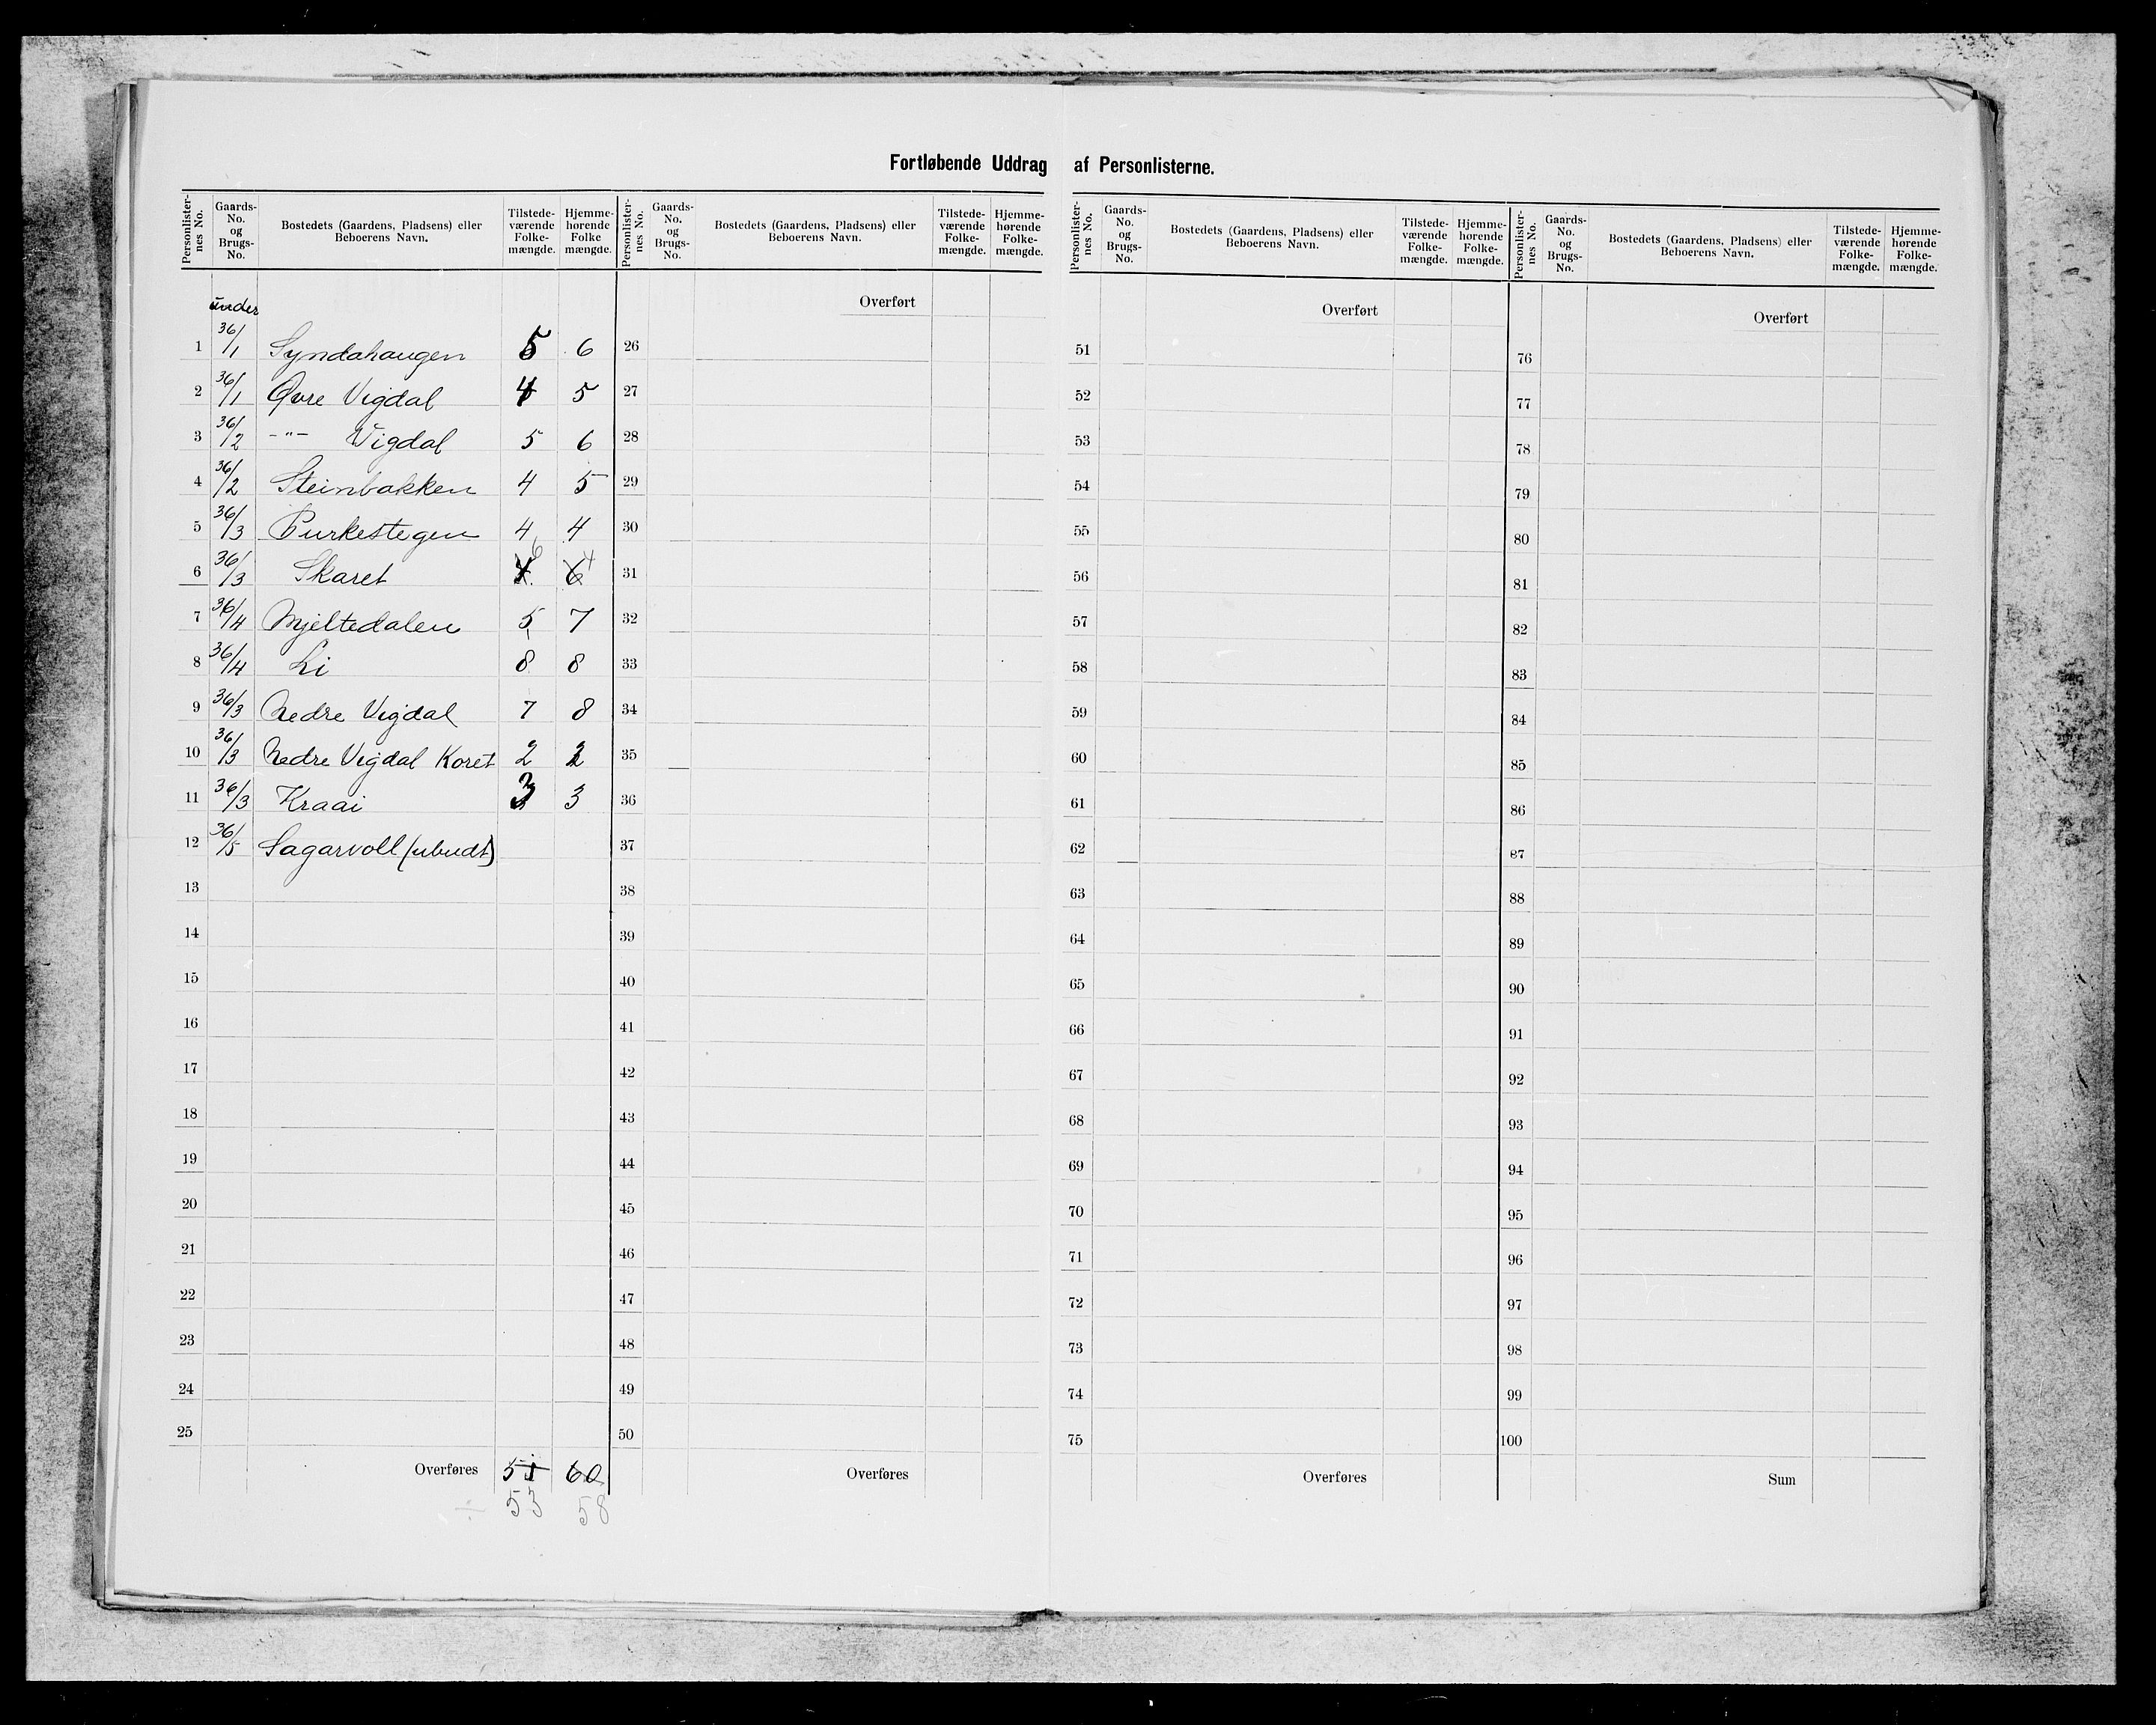 Fortløbende Uddrag af Personlisterne.
Personlister-nes No. Gaards-No. og Brugs-No. Bostedets (Gaardens, Pladsens) eller Beboerens Navn. Tilstede-værende Folke-mængde. Hjemme-hørende Folke mængde. Personlister-nes No. Gaards-No. og Brugs-No. Bostedets (Gaardens, Pladsens) eller Beboerens Navn. Tilstede-værende Folke-mængde. Hjemme-hørende Folke-mængde. Personlister-nes No. Gaards-No. og Brugs-No. Bostedets (Gaardens, Pladsens) eller Beboerens Navn. Tilstede-værende Folke-mængde. Hjemme-hørende Folke-mængde. Personlister-nes No. Gaards-No. og Brugs-No. Bostedets (Gaardens, Pladsens) eller Beboerens Navn. Tilstede-værende Folke-mængde. Hjemme-hørende Folke-mængde.
under Overført Overført Overført
1 36/1 Syndahaugen 5 6 26 51 76
2 36/1 Øvre Vigdal 4 5 27 52 77
3 36/2 -"- Vigdal 5 6 28 53 78
4 36/2 Steinbakken 4 5 29 54 79
5 36/3 Purkestegen 4 4 30 55 80
6 36/3 Skaret 4 6 6 4 31 56 81
7 36/4 Mjeltedalen 5 7 32 57 82
8 36/4 Li 8 8 33 58 83
9 36/3 Nedre Vigdal 7 8 34 59 84
10 36/3 Nedre Vigdal Koret 2 2 35 60 85
11 36/3 Kraai 3 3 36 61 86
12 36/5 Sagarvoll (ubudt) 37 62 87
13 38 63 88
14 39 64 89
15 40 65 90
16 41 66 91
17 42 67 92
18 43 68 93
19 44 69 94
20 45 70 95
21 46 71 96
22 47 72 97
23 48 73 98
24 49 74 99
25 50 75 100
Overføres 51 60 Overføres Overføres Sum
÷ 53 58